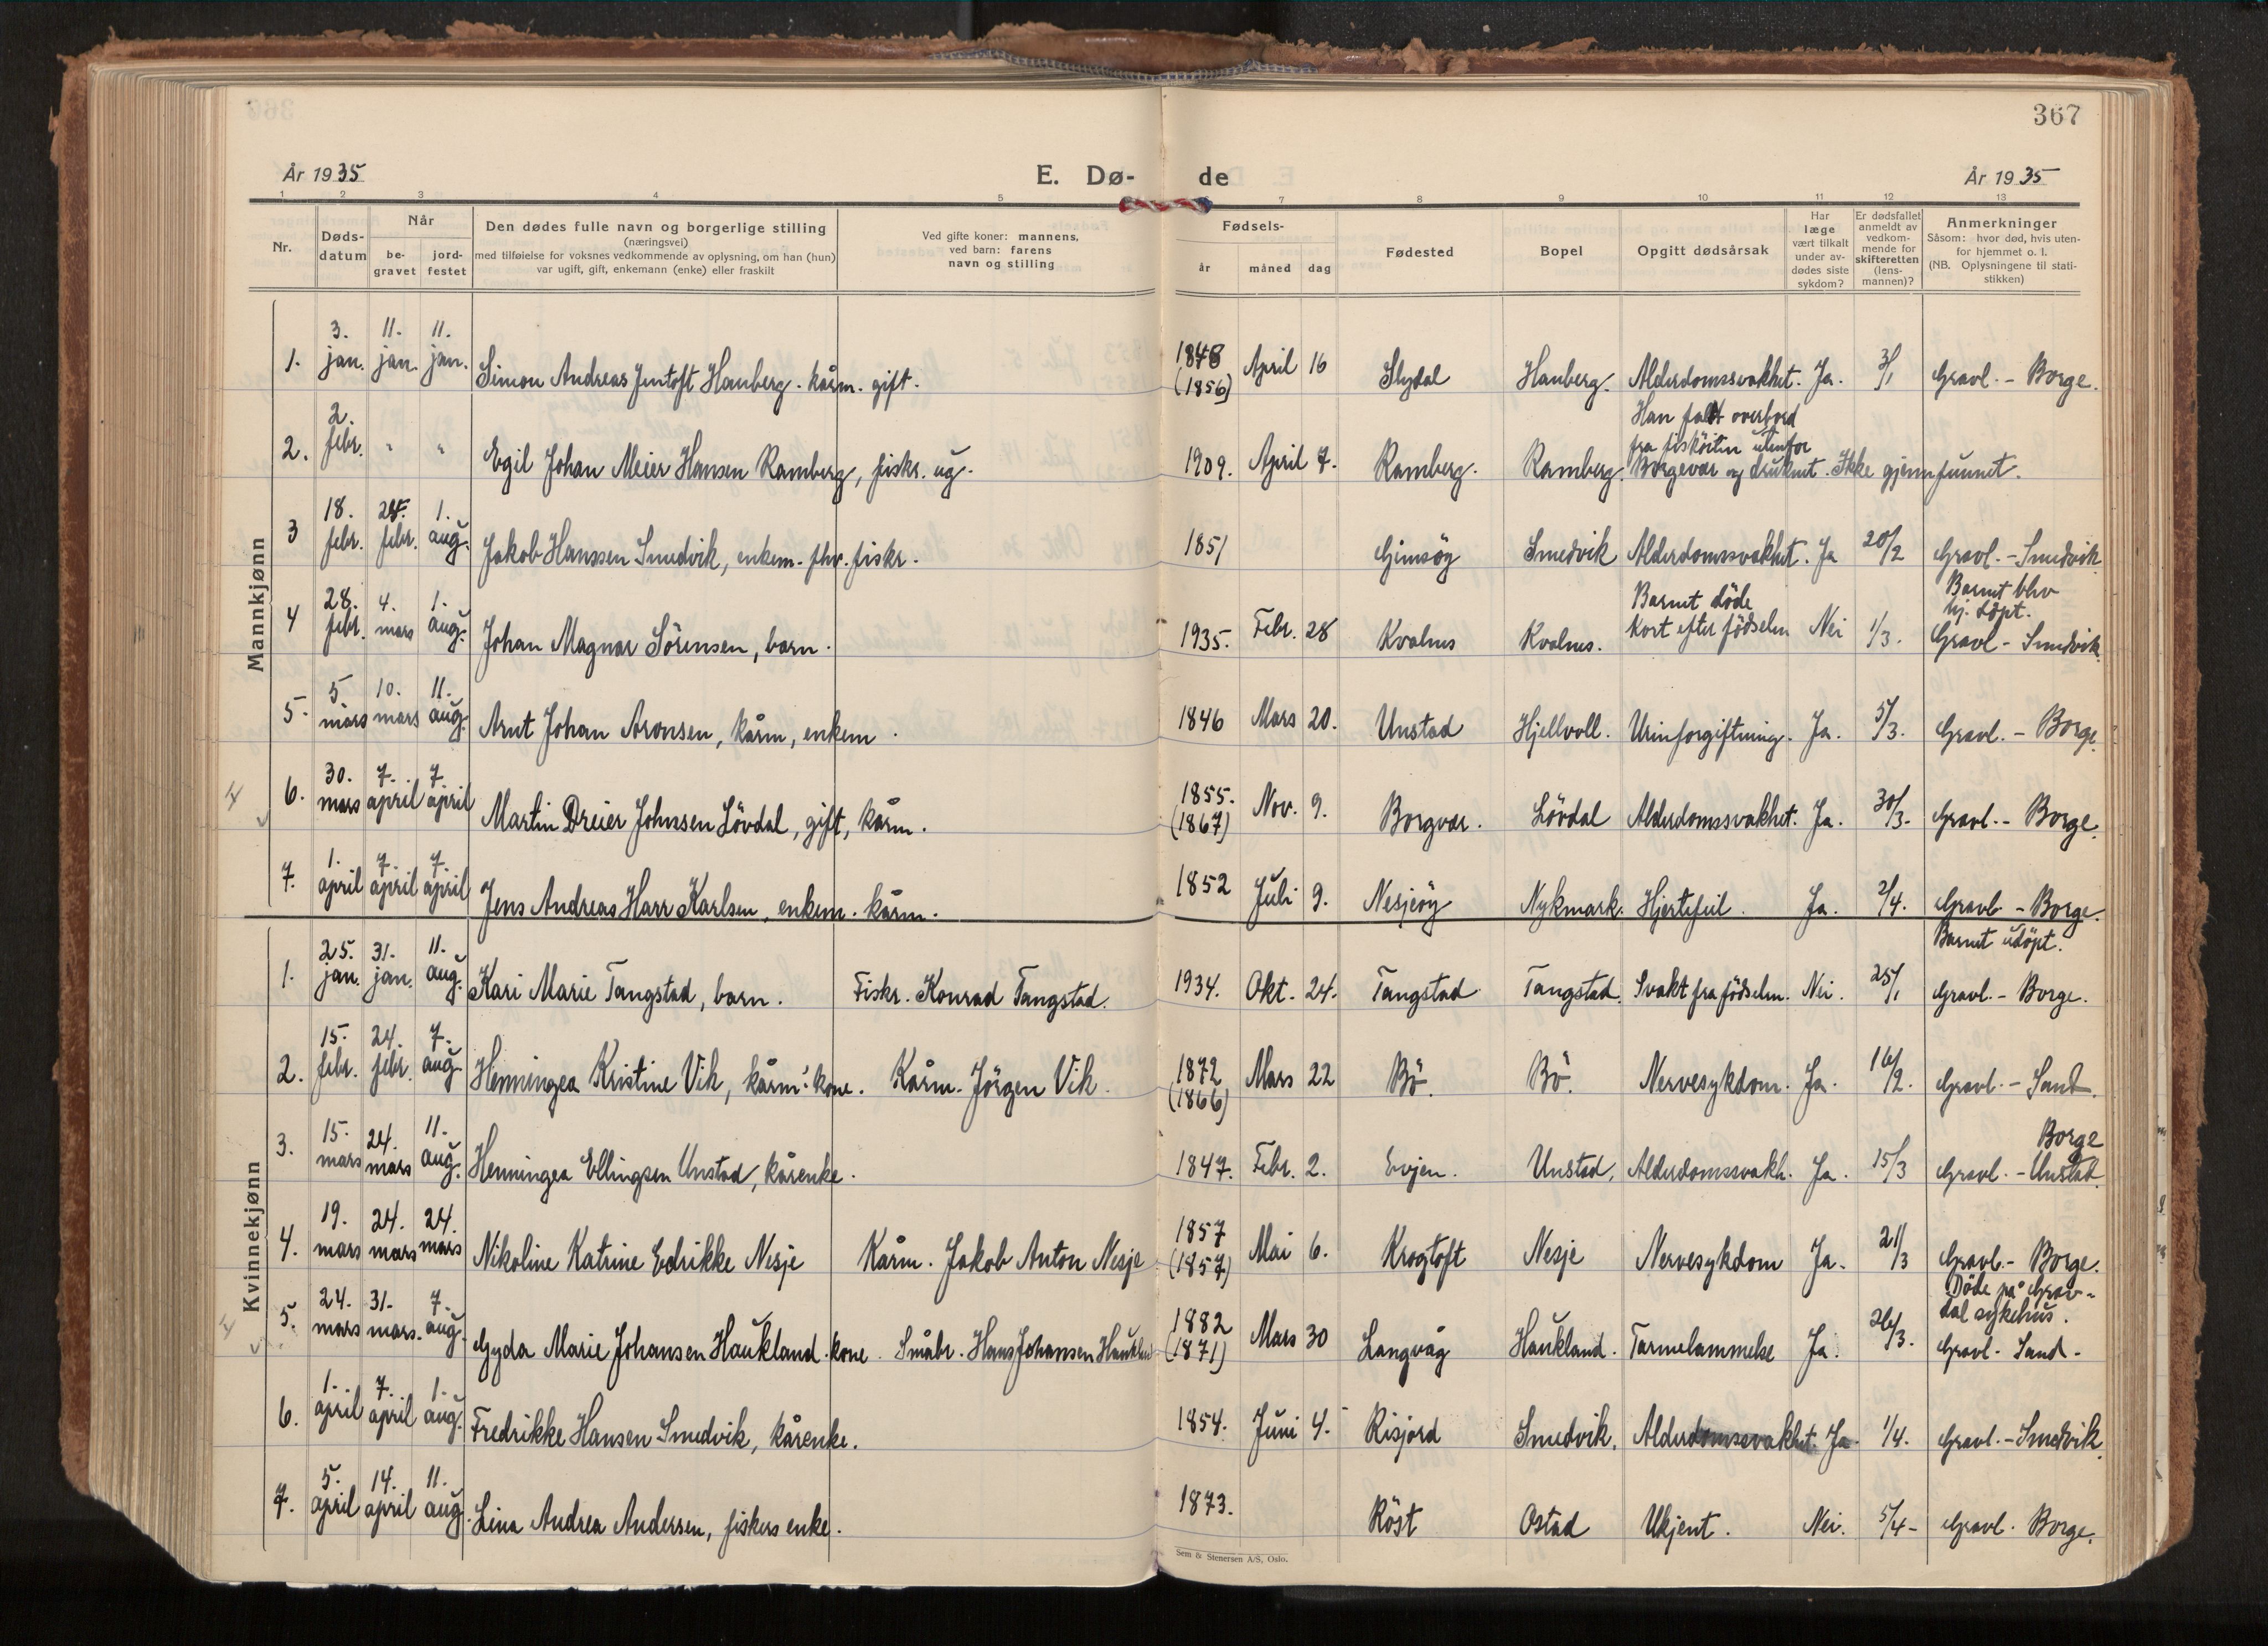 367
År 1935
E. Dø-
de
År 1935
1 2 3 4 5 7 8 9 10 11 12 13
Nr.
Døds-
datum
Når
be-
gravet
jord-
festet
Den dødes fulle navn og borgerlige stilling
(næringsvei)
med tilføielse for voksnes vedkommende av oplysning, om han (hun)
var ugift, gift, enkemann (enke) eller fraskilt
Ved gifte koner: mannens,
ved barn: farens
navn og stilling
Fødsels-
år måned dag
Fødested
Bopel
Opgitt dødsårsak
Har
læge
vært tilkalt
under av-
dødes siste
sykdom?
Er dødsfallet
anmeldt av
vedkom-
mende for
skifteretten
(lens-
mannen)?
Anmerkninger
Såsom: hvor død, hvis uten-
for hjemmet o. l.
(NB. Oplysningene til stati-
stikken)
Mannkjønn
1. 3. jan. 11. jan. 11. jan. Simon Andreas Jentoft Hauberg. kårm. gift. 1848 (1856) April 16 Slydal Hauberg. Alderdomssvakhet. Ja. 3/1 Gravl. - Borge.
2. 2. febr. " " Egil Johan Meier Hansen Ramberg, fiskr. ug. 1909. April 7. Ramberg. Ramberg.
Han falt overbord
fra fisköiten utenfor
Borgevær og druknet. Ikke gjenfunnet.
3 18. febr. 24. febr. 1. aug. Jakob Hanssen Smedvik, enkem. fhv. fiskr. 1851 Gimsöy Smedvik Alderdomssvakhet. Ja 20/2 Gravl. - Smedvik
4 28. febr. 4. mars 1. aug. Johan Magnar Sörensen, barn. 1935. Febr. 28 Kvalnes Kvalnes.
Barnet döde
kort efter födselen Nei 1/3.
Barnet blev
hj. döpt.
Gravl - Smedvik.
5. 5 mars 10. mars 11. aug. Arnt Johan Aronsen, kårm, enkem. 1846 Mars 20. Unstad Hjellvoll. Urinforgiftning. Ja. 5/3. Gravl. - Borge.
6. 30. mars 7. april 7. april Martin Dreier Johnsen Lövdal, gift, kårm. 1855. (1867) Nov. 9. Borgvær. Lövdal Alderdomssvakhet. Ja. 30/3. Gravl. - Borge.
7. 1. april 7. april 7. april Jens Andreas Harr Karlsen, enkem. kårm. 1852 Juli 9. Nesjeöy Nykmark. Hjertefeil. Ja. 2/4. Gravl - Borge.
Kvinnekjønn
1. 25. jan. 31. jan. 11. aug. Kari Marie Tangstad, barn. Fiskr. Konrad Tangstad. 1934. Okt. 24. Tangstad Tangstad. Svakt fra födselen. Nei. 25/1
Barnet udöpt.
Gravl. - Borge.
2. 15. febr. 24. febr. 7. aug. Henningea Kristine Vik, kårm. kone. Kårm. Jörgen Vik. 1872 (1866) Mars 22 Bö. Bö. Nervesykdom. Ja. 16/2. Gravl. - Sand.
3. 15. mars 24. mars 11. aug. Henningea Ellingsen Unstad, kårenke. 1847. Febr. 2. Evjen. Unstad. Alderdomssvakh. Ja. 15/3
Borge
Gravl. - Unstad.
4. 19. mars 24. mars 24. mars Nikoline Katrine Edrikke Nesje Kårm. Jakob Anton Nesje 1857 (1857) Mai 6. Krogtoft Nesje Nervesykdom Ja. 21/3 Gravl. - Borge.
5. 24. mars 31. mars. 7. aug. Gyda Marie Johansen Haukland. kone. Småbr. Hans Johansen Haukland 1882 (1871) Mars 30 Langvåg Haukland. Tarmelammelse Ja. 26/3.
Döde på Grav-
dal sykehus.
Gravl. Sand.
6. 1. april 7. april 1. aug. Fredrikke Hansen Smedvik, kårenke. 1854. Juni 4. Risjord Smedvik. Alderdomssvakhet. Ja. 1/4. Gravl. - Smedvik.
7. 5. april 14. april 11. aug. Lina Andrea Andersen, fiskers enke. 1873. Röst Ostad Ukjent. Nei. 5/4 - Gravl. Borge.
Sem & Stenersen A/S, Oslo.